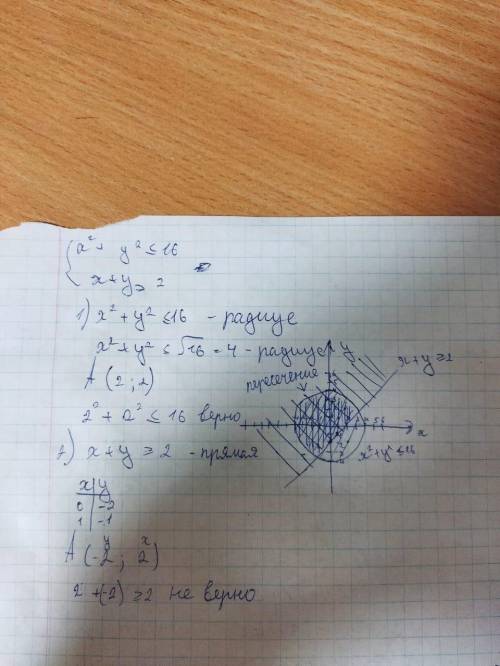 x² + y² ≤ 16
x + y ≥ 2
1) x² + y² ≤ 16 - радиус
x² + y² ≤ √16 = 4 - радиус
A (2; 2)
2² + 2² ≤ 16 верно
2) x + y ≥ 2 - прямая
x | y
0 | -2
1 | -1
y x
A (-2; 2)
2 + (-2) ≥ 2 не верно
y
x + y ≥ 2
пересечение
x
x² + y² ≤ 16